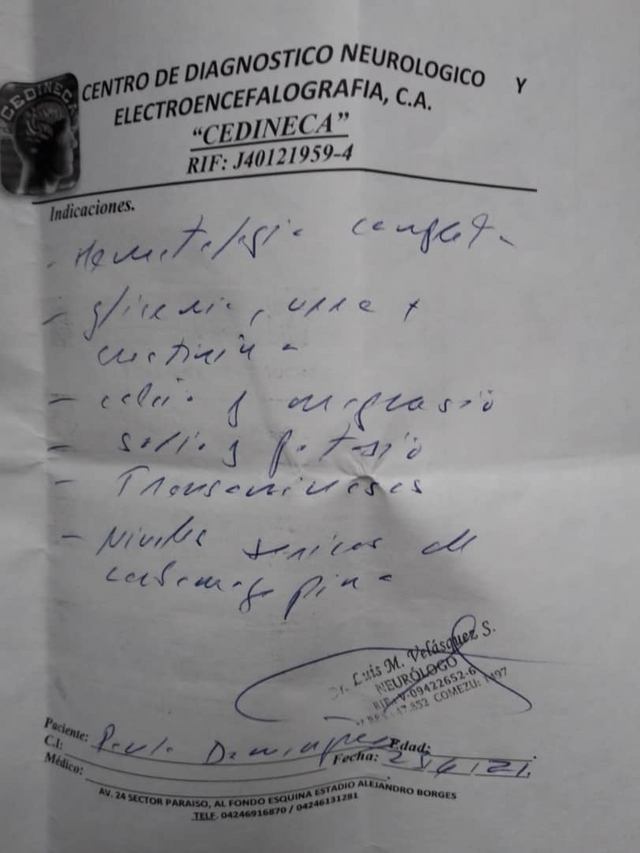 CEDINECA
CENTRO DE DIAGNOSTICO NEUROLOGICO Y
ELECTROENCEFALOGRAFIA, C.A.
"CEDINECA"
RIF: J40121959-4
Indicaciones.
- Hematologia completa
- glicemia, urea y
creatinina
- calcio y magnesio
- sodio y potasio
- Transaminasas
- Niveles sericos de
carbamazepina
Dr. Luis M. Velásquez S.
NEURÓLOGO
RIF: V-09422652-6
47.852 COMEZU:
Paciente: Paula Dominguez Edad:
C.I: Fecha:
Médico:
AV. 24 SECTOR PARAISO, AL FONDO ESQUINA ESTADIO ALEJANDRO BORGES
TELF. 04246916870 / 04246131281